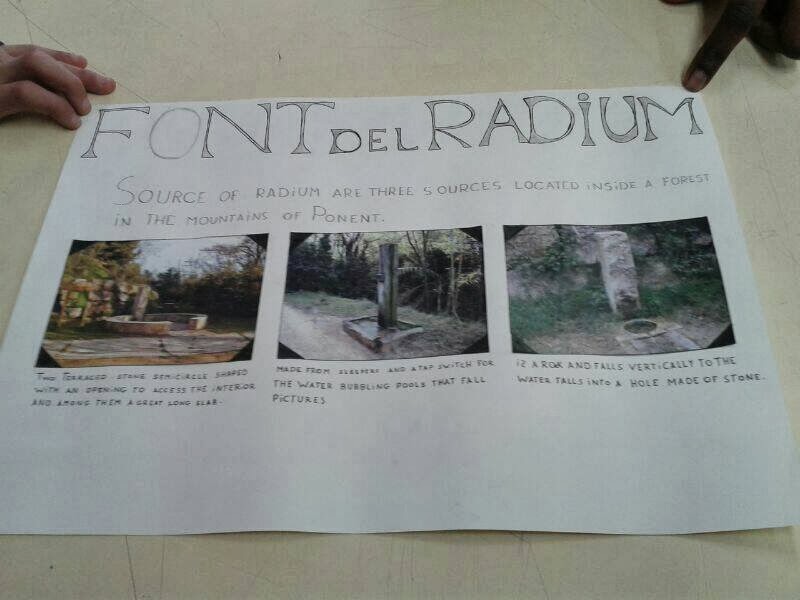 FONT DEL RADIUM
SOURCE OF RADIUM ARE THREE SOURCES LOCATED INSIDE A FOREST
IN THE MOUNTAINS OF PONENT.
TWO TERRACED STONE SEMICIRCLE SHAPED
WITH AN OPENING TO ACCESS THE INTERIOR
AND AMONG THEM A GREAT LONG SLAB.
MADE FROM SLEEPERS AND A TAP SWITCH FOR
THE WATER BUBBLING POOLS THAT FALL
PICTURES
IS A ROK AND FALLS VERTICALLY TO THE
WATER FALLS INTO A HOLE MADE OF STONE.